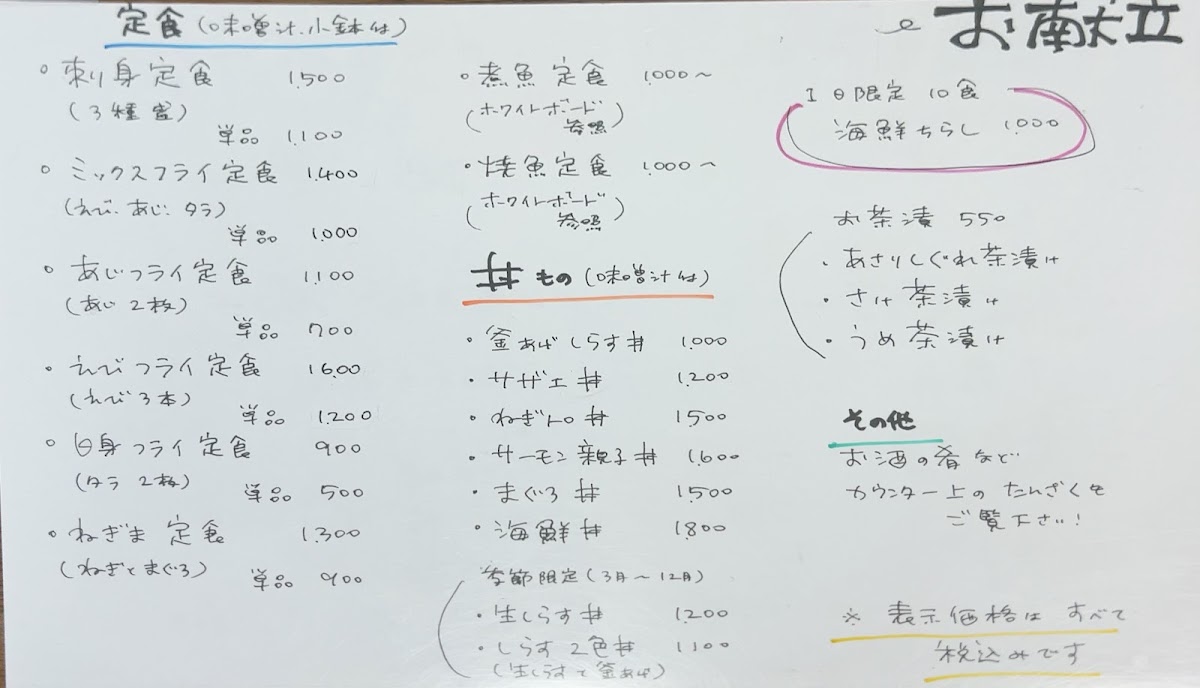 お献立
定食(味噌汁.小鉢付)
○ 刺身定食 1.500
(3種盛)
単品 1.100
○ ミックスフライ定食 1.400
(えび.あじ.タラ)
単品 1.000
○ あじフライ定食 1.100
(あじ2枚)
単品 700
・えびフライ定食 1600
(えび3本)
単品 1.200
○ 白身フライ定食 900
(タラ2枚)
単品 500
○ ねぎま定食 1.300
(ねぎとまぐろ)
単品 900
・煮魚定食 1.000〜
(ホワイトボード
参照)
・焼魚定食 1.000〜
(ホワイトボード
参照)
丼もの(味噌汁付)
・釜あげしらす丼 1.000
・サザエ丼 1.200
・ねぎトロ丼 1500
・サーモン親子丼 1.600
・まぐろ丼 1500
・海鮮丼 1.800
季節限定(3月〜12月)
・生しらす丼 1.200
・しらす2色丼 1100
(生しらすと釜あげ)
1日限定 10食
海鮮ちらし 1.000
お茶漬 550
・あさりしぐれ茶漬け
・さけ茶漬け
・うめ茶漬け
その他
お酒の肴など
カウンター上のたんざくを
ご覧下さい!
※ 表示価格はすべて
税込みです